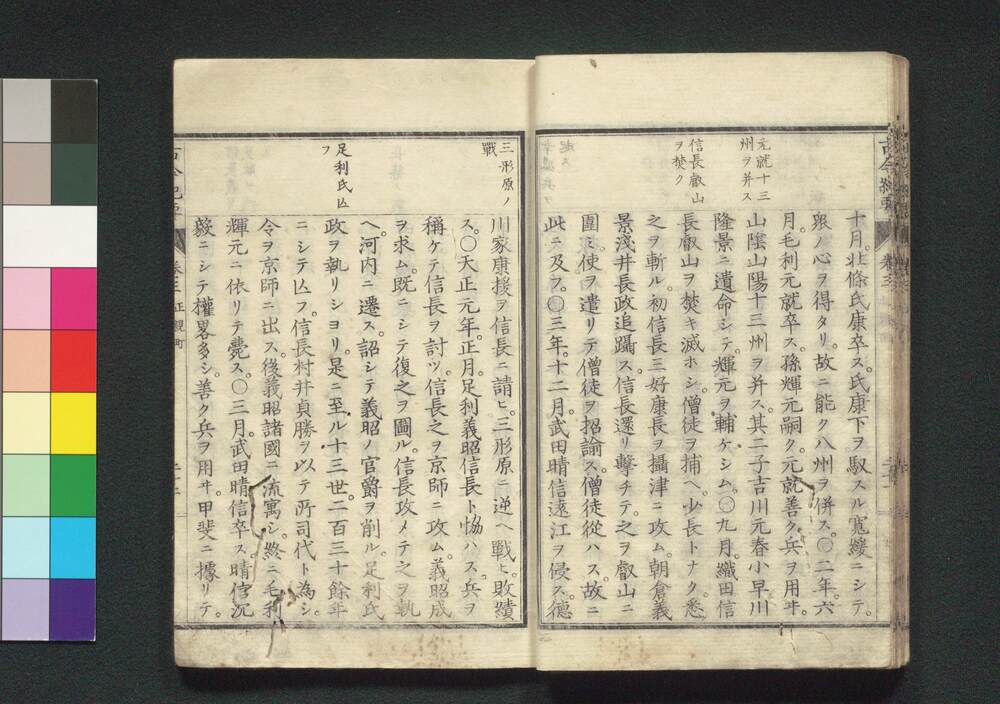 元就十三
州ヲ并ス
信長叡山
ヲ焚ク
十月。北條氏康卒ス。氏康下ヲ馭スル寛緩ニシテ。
衆ノ心ヲ得タリ。故ニ能ク八州ヲ併ス。〇二年。六
月。毛利元就卒ス。孫輝元嗣ク。元就善ク兵ヲ用ヰ。
山陰山陽十三州ヲ并ス。其二子吉川元春小早川
隆景ニ遺命シテ。輝元ヲ輔ケシム。〇九月。織田信
長叡山ヲ焚キ滅ホシ。僧徒ヲ捕ヘ。少長トナク。悉
之ヲ斬ル。初信長三好康長ヲ攝津ニ攻ム。朝倉義
景淺井長政追躡ス。信長還リ擊チテ。之ヲ叡山ニ
圍ミ。使ヲ遣リテ僧徒ヲ招諭ス。僧徒從ハス。故ニ
此ニ及フ。〇三年。十二月。武田晴信遠江ヲ侵ス。德
三形原ノ
戰
足利氏亾
フ
川家康援ヲ信長ニ請ヒ。三形原ニ逆ヘ戰ヒ。敗績
ス。〇天正元年。正月。足利義昭信長ト恊ハス。兵ヲ
稱ケテ信長ヲ討ツ。信長之ヲ京師ニ攻ム。義昭成
ヲ求ム。既ニシテ復之ヲ圖ル。信長攻メテ之ヲ執
ヘ。河内ニ遷ス。詔シテ義昭ノ官爵ヲ削ル。足利氏
政ヲ執リシヨリ。是ニ至ル十三世。二百三十餘年
ニシテ亾フ。信長村井貞勝ヲ以テ所司代ト為シ。
令ヲ京師ニ出ス。後義昭諸國ニ流寓シ。終ニ毛利
輝元ニ依リテ薨ス。〇三月。武田晴信卒ス。晴信沉
毅ニシテ權畧多シ。善ク兵ヲ用ヰ。甲斐ニ據リテ。